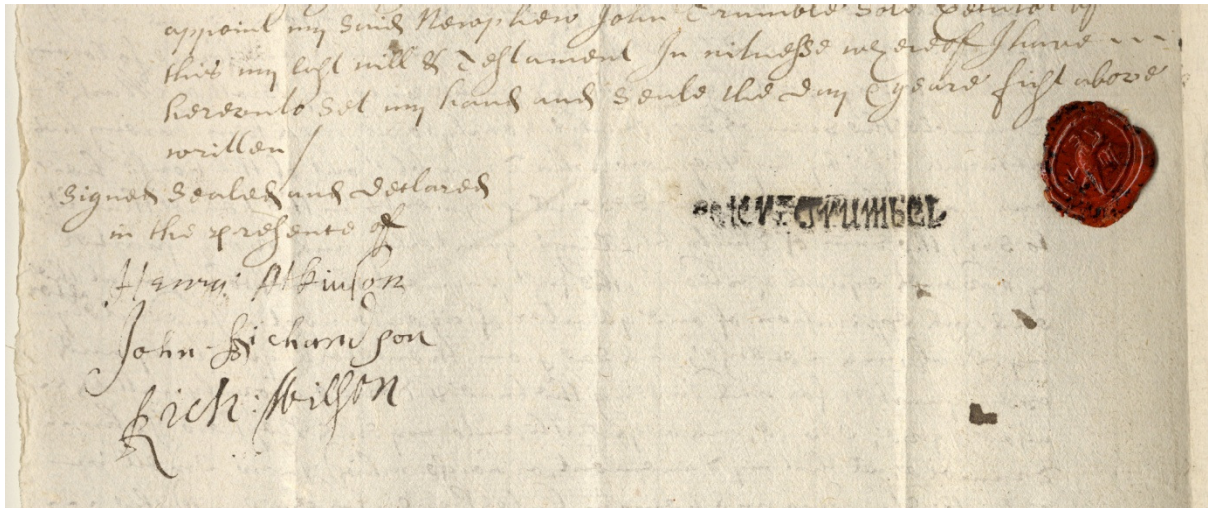 appoint my said Newphew John Trumble Sole Executor of
this my last will & Testament In witnesse whereof I have
hereunto Set my hand and Seale the day & yeare first above
written /
Signed Sealed and declared
in the presence of
Henry: Atkinson
John Richardson
Rich: Wilson
Trumbel